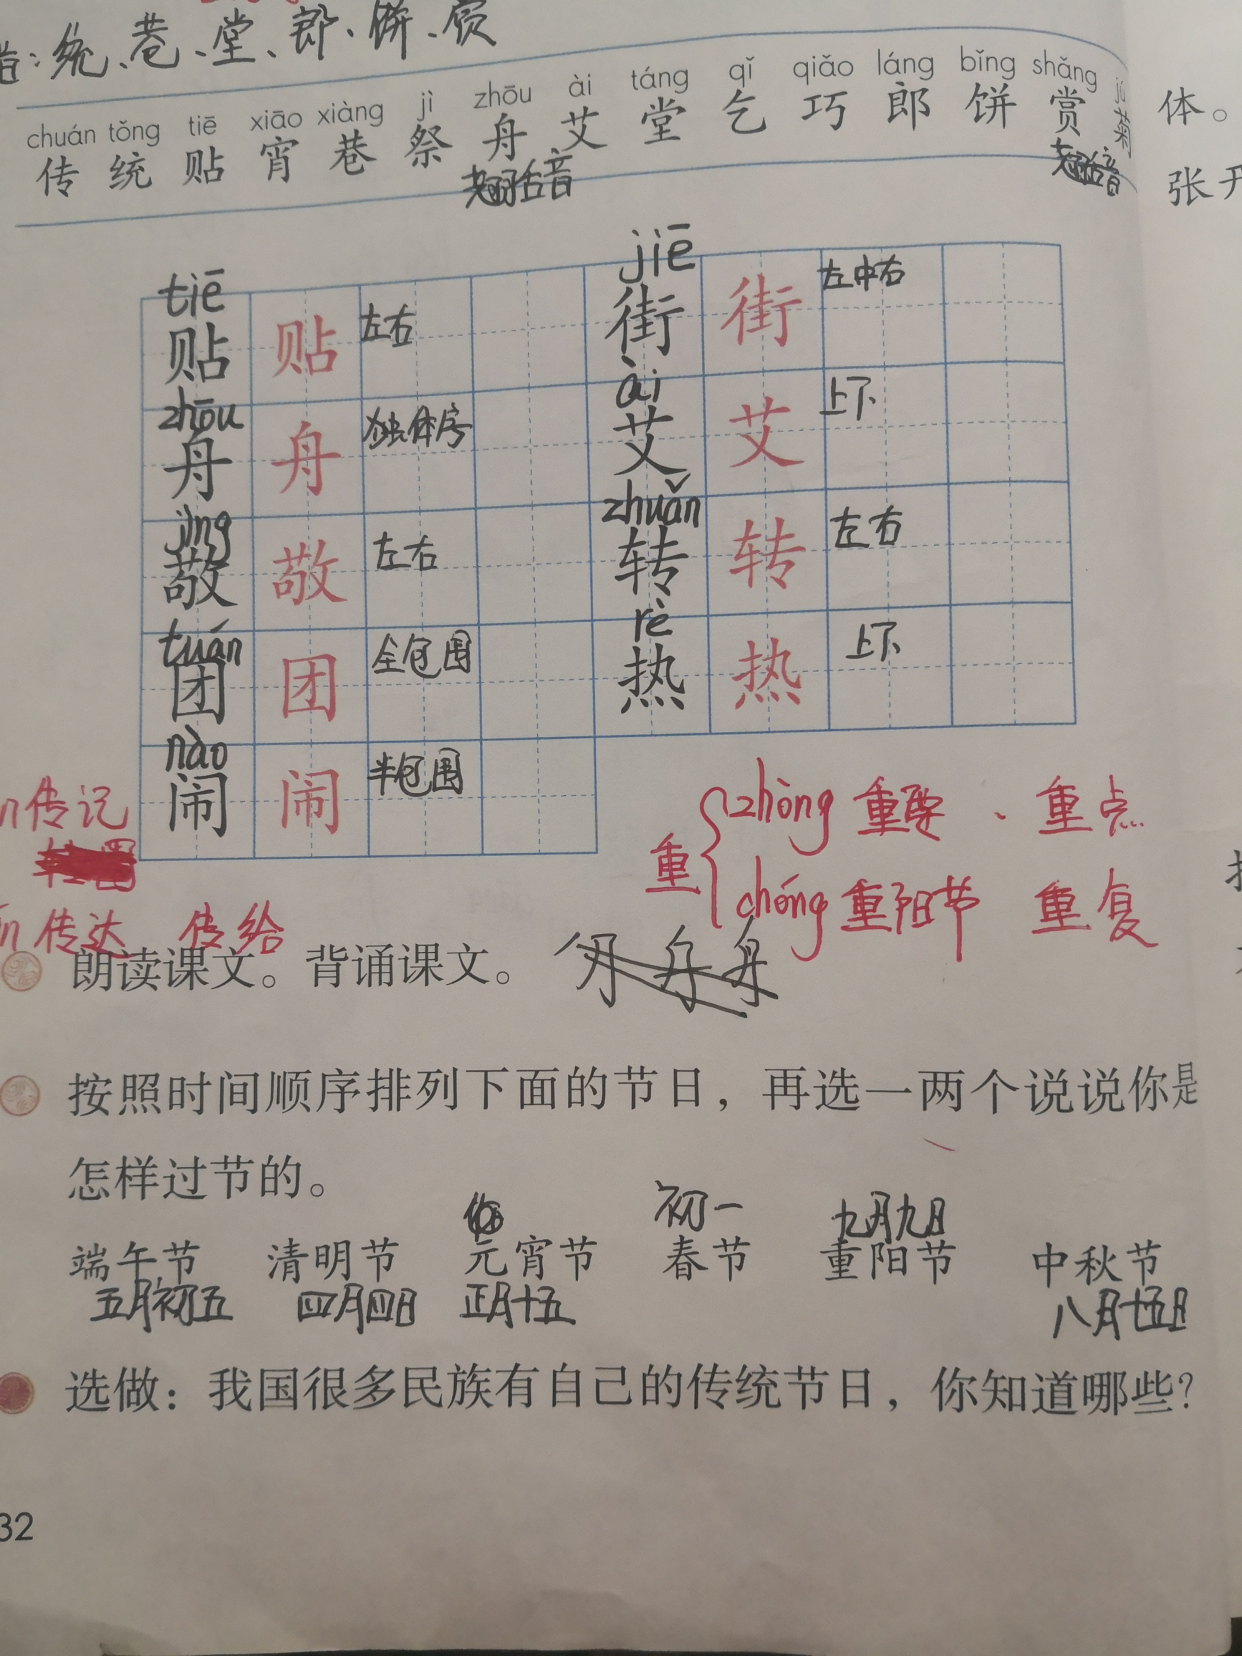 统、巷、堂、郎、饼、赏
chuán tǒng tiē xiāo xiàng jì zhōu ài táng qǐ qiǎo láng bǐng shǎng
传 统 贴 宵 巷 祭 舟 艾 堂 乞 巧 郎 饼 赏 菊
体。
翘舌音 翘舌音
张开
tiē jiē
贴 贴 左右 街 街 左中右
zhōu ài
舟 舟 独体字 艾 艾 上下
jìng zhuǎn
敬 敬 左右 转 转 左右
tuán rè
团 团 全包围 热 热 上下
nào
闹 闹 半包围
传记
重 zhòng 重要、重点
chóng 重阳节 重复
传达 传给
朗读课文。背诵课文。
按照时间顺序排列下面的节日，再选一两个说说你是
怎样过节的。
初一 九月九日
端午节 清明节 元宵节 春节 重阳节 中秋节
五月初五 四月四日 正月十五 八月十五日
选做：我国很多民族有自己的传统节日，你知道哪些？
32